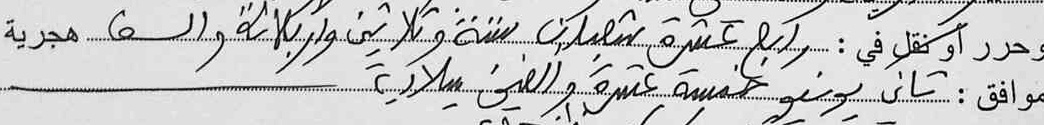 وحرر أو نقل في : رابع عشرة شعبان ستة وثلاثين واربعمائة والف هجرية
موافق : ثاني يونيو خمسة عشرة والفين ميلادية